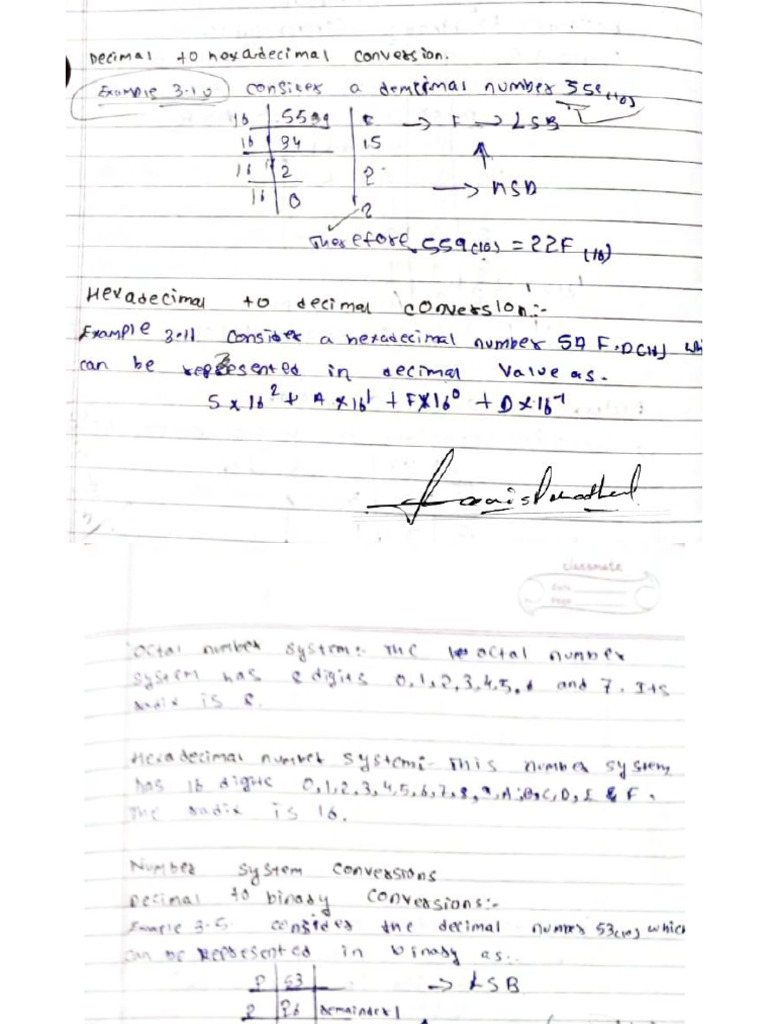 Decimal to hoxadecimal conversion.
Example 3.10 consider a demcimal number 559(10)
16 | 5599 | F → F → LSB
16 | 34 | 15
16 | 2 | 2 → MSD
16 | 0 | 2
Therefore, 559(10) = 22F (16)
Hexadecimal to decimal conversion:-
Example 3.11 consider a hexadecimal number 5A F.D(16)
can be represented in decimal value as.
5 x 16² + A x 16¹ + F x 16⁰ + D x 16⁻¹
classmate
Date
Page
Octal number system:- The octal number
system has 8 digits 0,1,2,3,4,5,6 and 7. Its
radix is 8.
Hexadecimal number system:- This number system
has 16 digits 0,1,2,3,4,5,6,7,8,9,A,B,C,D,E & F.
The radix is 16.
Number system conversions
Decimal to binary conversions:-
Example 3.5 consider the decimal number 53(10) which
can be represented in binary as:.
2 | 53 → LSB
2 | 26 | Remainder 1